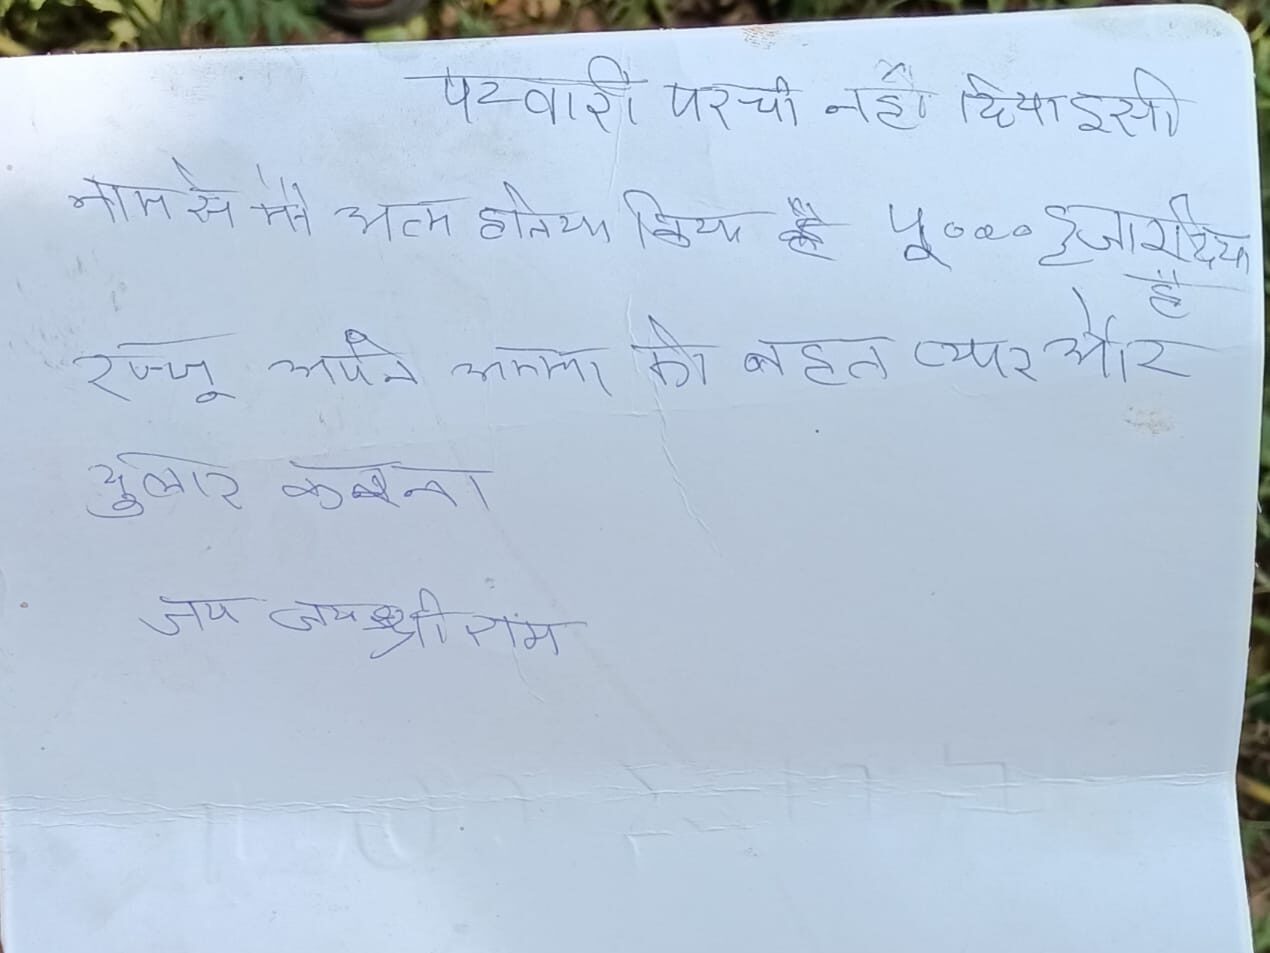 पटवारी परची नही दिया इसी
नाम से मैं अत्म होतया किया है ५००० हजार दिया
है
रज्जू अपने अम्मा को बहुत प्यार और
दुलार करना
जय जय श्री राम